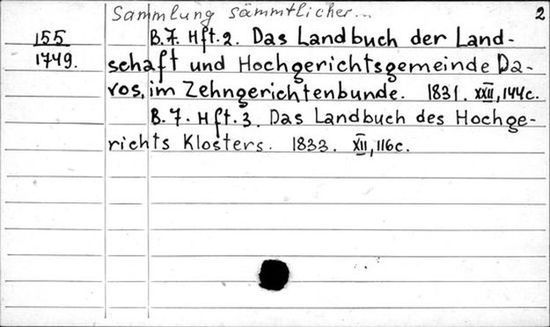 Sammlung sämmtlicher... 2
155 B.7. Hft.2. Das Landbuch der Land-
1749. schaft und Hochgerichtsgemeinde Da-
vos, im Zehngerichtenbunde. 1831. XXII, 144c.
B.7. Hft.3. Das Landbuch des Hochge-
richts Klosters. 1833. XII, 116c.